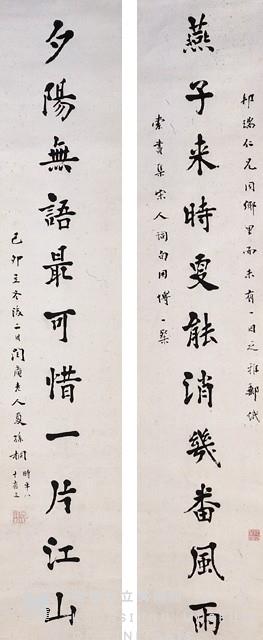 燕子来時更能消幾番風雨
邦瑞仁兄同鄉里而未有一日之雅郵紙
索書集宋人詞句用博一粲
夕陽無語最可惜一片江山
己卯立冬後二日閏庵老人夏孫桐時年八十有三